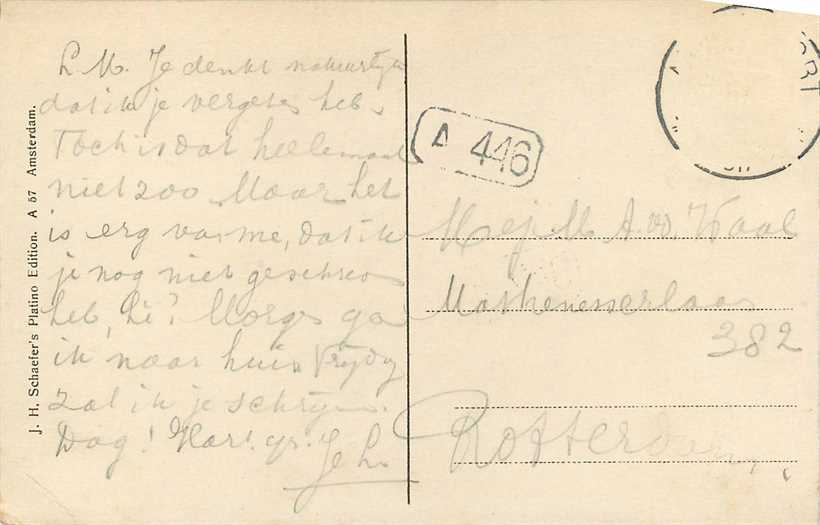 L. M. Je denkt natuurlijk
dat ik je vergeten heb.
Toch is dat heelemaal
niet zoo. Maar het
is erg van me, dat ik
je nog niet geschreven
heb, hè? Morgen ga
ik naar huis Vrijdag
zal ik je schrijven.
Dag! Hart. gr.
J. H. Schaefer's Platino Edition. A 57 Amsterdam.
A 446
Mej. M. A. v.d. Waal
Mathenesserlaan
382
Rotterdam.